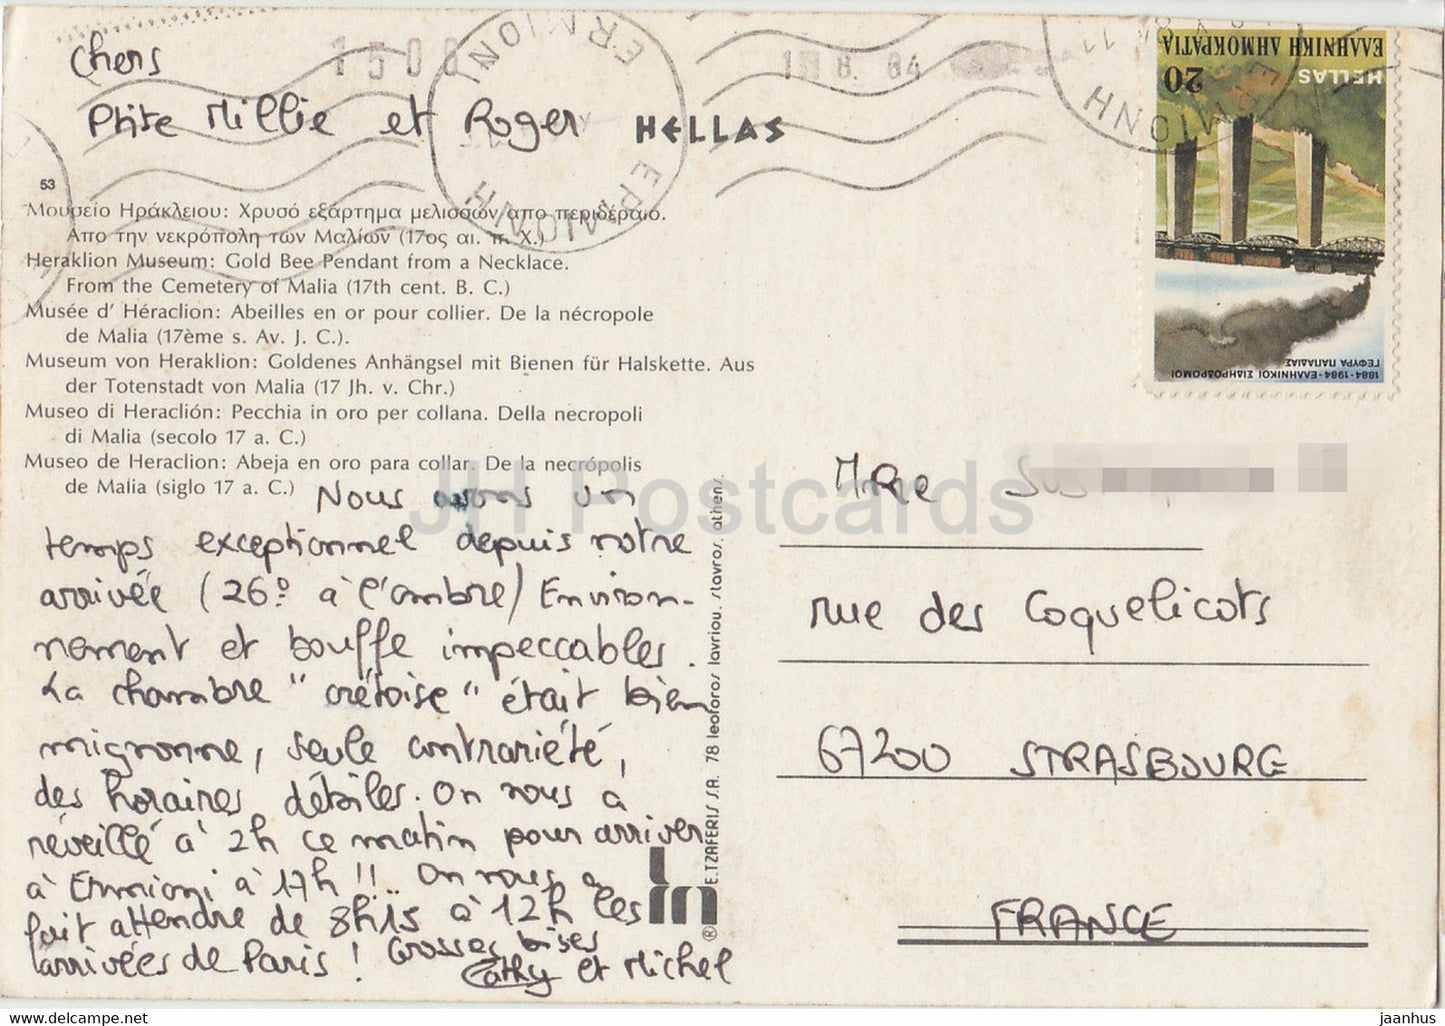 Chers
Ptite Millie et Roger
1500
18. 8. 84
ERMIONI
ΕΡΜΙΟΝΗ
HELLAS
ΕΡΜΙΟΝΗ
ΕΛΛΗΝΙΚΗ ΔΗΜΟΚΡΑΤΙΑ
HELLAS
20
1884-1984 - ΕΛΛΗΝΙΚΟΙ ΣΙΔΗΡΟΔΡΟΜΟΙ
ΓΕΦΥΡΑ ΠΑΠΑΔΙΑΣ
53
Μουσείο Ηράκλειου: Χρυσό εξάρτημα μελισσών απο περιδέραιο.
Απο την νεκρόπολη των Μαλίων (17ος αι. π. Χ.)
Heraklion Museum: Gold Bee Pendant from a Necklace.
From the Cemetery of Malia (17th cent. B. C.)
Musée d' Héraclion: Abeilles en or pour collier. De la nécropole
de Malia (17ème s. Av. J. C.).
Museum von Heraklion: Goldenes Anhängsel mit Bienen für Halskette. Aus
der Totenstadt von Malia (17 Jh. v. Chr.)
Museo di Heraclión: Pecchia in oro per collana. Della necropoli
di Malia (secolo 17 a. C.)
Museo de Heraclion: Abeja en oro para collar. De la necrópolis
de Malia (siglo 17 a. C.)
Nous avons un
temps exceptionnel depuis notre
arrivée (26° à l'ombre) Environ-
nement et bouffe impeccables.
La chambre "crétoise" était bien
mignonne, seule contrariété,
des horaires débiles. On nous a
réveillé à 2h ce matin pour arriver
à Ermioni à 17h!! On nous a
fait attendre de 8h15 à 12h les
arrivées de Paris! Grosses bises
Cathy et Michel
E. TZAFERIS S.A. 78 leoforos lavriou. stavros. athens.
®
Mme Sus
rue des Coquelicots
67200 STRASBOURG
FRANCE
JH Postcards
hipstamp.com
jaanhus